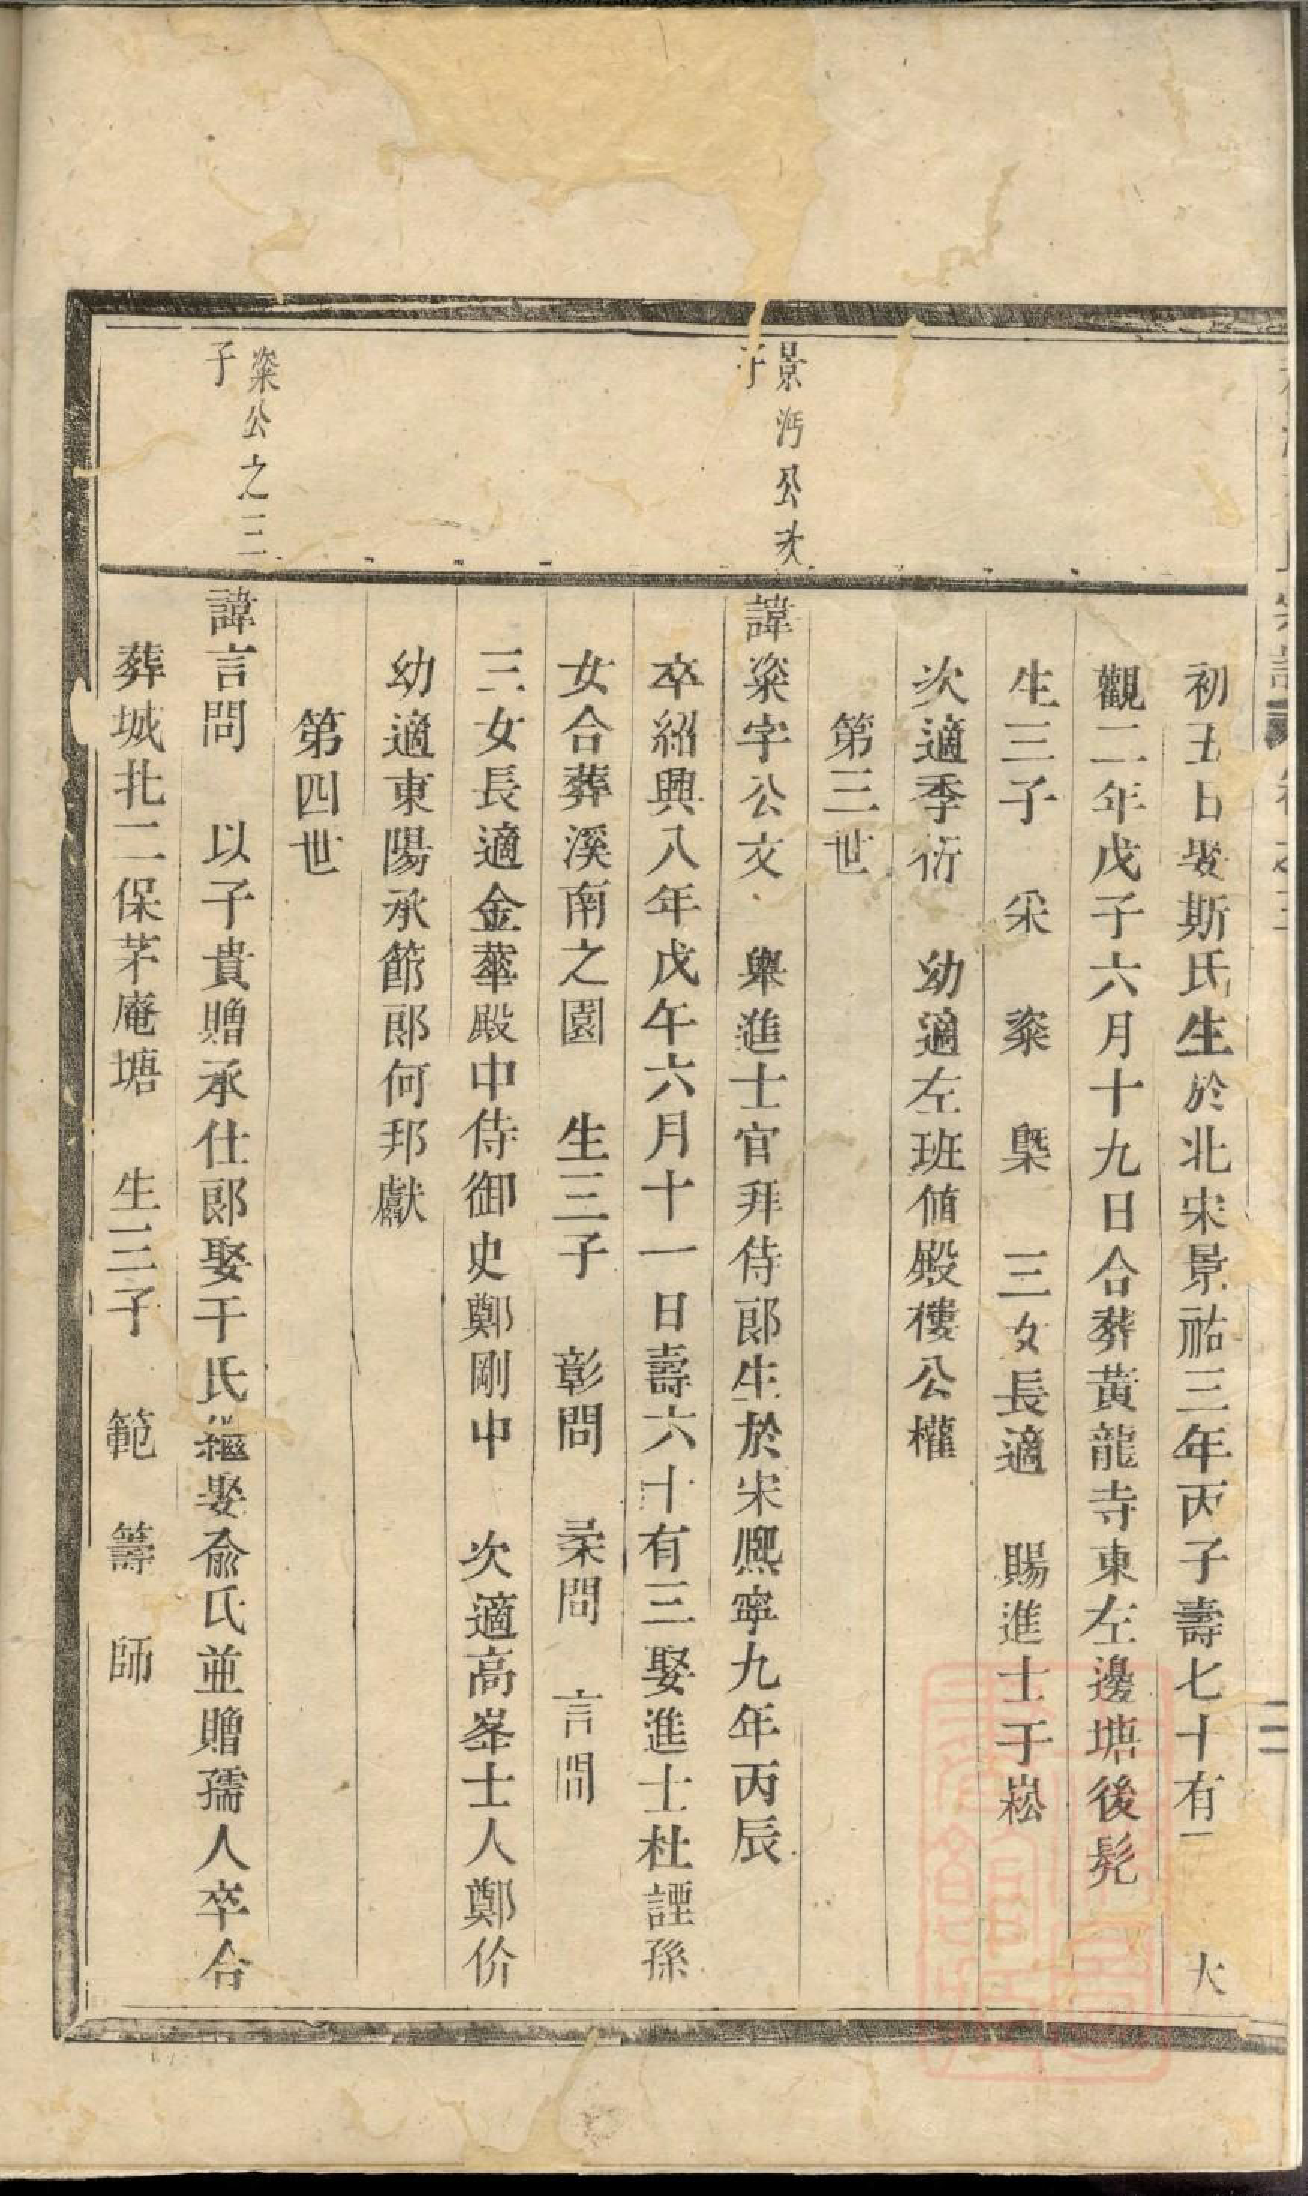 初五日娶斯氏生於北宋景祐三年丙子壽七十有 大
觀二年戊子六月十九日合葬黃龍寺東左邊塘後髡
生三子 采 粢 槩 三女長適 賜進士于崧
次適季衍 幼適左班値殿樓公權
第三世
景沔公次
子
諱粢字公文 舉進士官拜侍郎生於宋熙寧九年丙辰
卒紹興八年戊午六月十一日壽六十有三娶進士杜諲孫
女合葬溪南之園 生三子 彰問 柔問 言問
三女長適金華殿中侍御史鄭剛中 次適高峯士人鄭价
幼適東陽承節郎何邦獻
第四世
粢公之三
子
諱言問 以子貴贈承仕郎娶干氏繼娶俞氏並贈孺人卒合
葬城北二保茅庵塘 生三子 範 籌 師